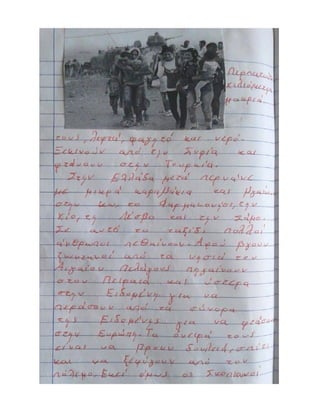 Περπατούν
χιλιόμετρα
μακριά
τους, λεφτά, φαγητό και νερό.
Ξεκινούν από την Συρία και
φτάνουν στην Τουρκία.
Στην Ελλάδα μετά περνάνε
με μικρά καραβάκια και βγαίνουν
στην Κω, το Φαρμακονήσι, την
Χίο, τη Λέσβο και την Σάμο.
Σε αυτό το ταξίδι πολλοί
άνθρωποι πεθαίνουν. Αφού βγουν
ζωντανοί από τα νησιά του
Αιγαίου Πελάγους πηγαίνουν
στον Πειραιά και ύστερα
στην Ειδομένη για να
περάσουν από τα σύνορα
της Ειδομένης για να φτάσουν
στην Ευρώπη. Τα όνειρά τους
είναι να βρουν δουλειά, σπίτι
και να ξεφύγουν από τον
πόλεμο. Εκεί όμως οι Σκοπιανοί